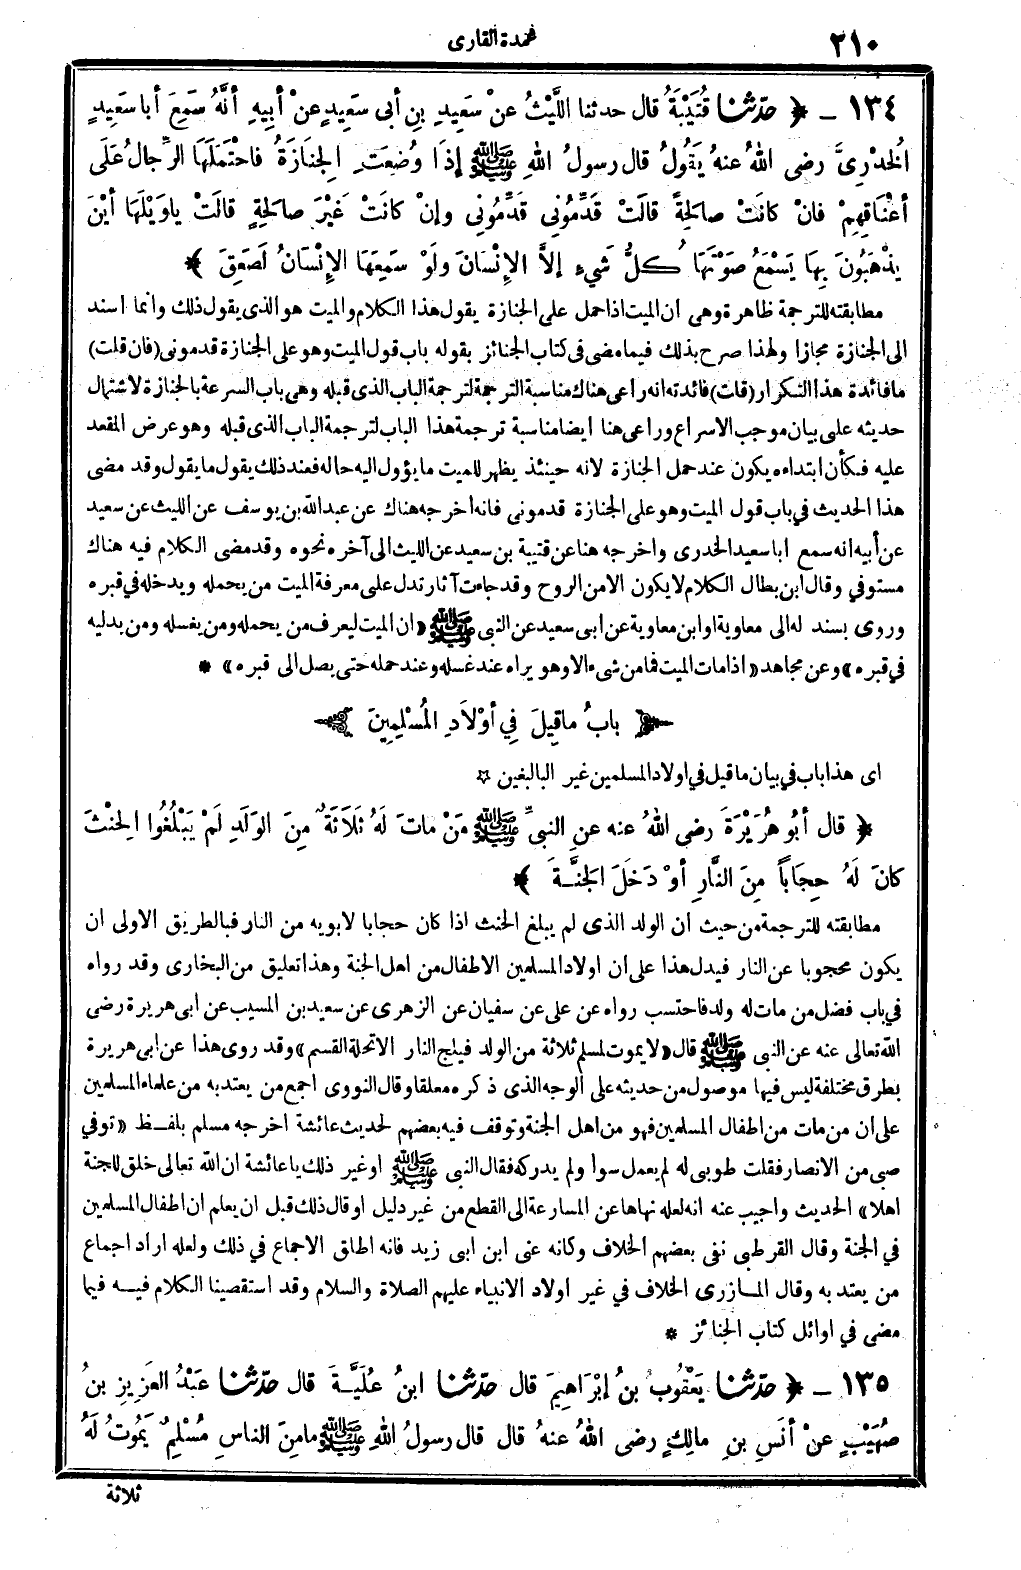 ٢١٠
عمدة القارى
١٣٤ - ﴿ حدّثنا قُتَيْبَةُ قال حدثنا اللَّيْثُ عنْ سَعِيدِ بنِ أبى سَعِيدٍ عنْ أبِيهِ أنَّهُ سَمِعَ أبا سَعِيدٍ
الخُدْرِىَّ رضى اللهُ عنهُ يَقُولُ قال رسولُ اللهِ ﷺ إذَا وُضِعَتِ الجِنَازَةُ فاحْتَمَلَهَا الرِّجالُ عَلَى
أعْنَاقِهِمْ فانْ كانَتْ صالِحَةً قالَتْ قَدِّمُونِى قَدِّمُونِى وإنْ كانَتْ غَيْرَ صالِحَةٍ قالَتْ ياوَيْلَهَا أيْنَ
يذْهَبُونَ بِها يَسْمَعُ صَوْتَهَا كُلُّ شَىْءٍ إلاَّ الإِنْسانَ ولَوْ سَمِعَهَا الإِنْسَانُ لَصَعِقَ ﴾
مطابقته للترجمة ظاهرة وهى ان الميت اذا حمل على الجنازة يقول هذا الكلام والميت هو الذى يقول ذلك وانما اسند
الى الجنازة مجازا ولهذا صرح بذلك فيما مضى فى كتاب الجنائز بقوله باب قول الميت وهو على الجنازة قدمونى (فان قلت)
ما فائدة هذا التكرار (قلت) فائدته انه راعى هناك مناسبة الترجمة لترجمة الباب الذى قبله وهى باب السرعة بالجنازة لاشتمال
حديثه على بيان موجب الاسراع وراعى هنا ايضا مناسبة ترجمة هذا الباب لترجمة الباب الذى قبله وهو عرض المقعد
عليه فكأن ابتداءه يكون عند حمل الجنازة لانه حينئذ يظهر للميت ما يؤول اليه حاله فعند ذلك يقول ما يقول وقد مضى
هذا الحديث في باب قول الميت وهو على الجنازة قدمونى فانه أخرجه هناك عن عبد الله بن يوسف عن الليث عن سعيد
عن أبيه انه سمع ابا سعيد الخدرى واخرجه هنا عن قتيبة بن سعيد عن الليث الى آخره نحوه وقد مضى الكلام فيه هناك
مستوفي وقال ابن بطال الكلام لا يكون الا من الروح وقد جاءت آثار تدل على معرفة الميت من يحمله ويدخله في قبره
وروى بسند له الى معاوية او ابن معاوية عن ابى سعيد عن النبى ﷺ «ان الميت ليعرف من يحمله ومن يغسله ومن يدليه
في قبره» وعن مجاهد «اذا مات الميت فما من شىء الا وهو يراه عند غسله وعند حمله حتى يصل الى قبره» *
بابُ ما قِيلَ فِي أوْلاَدِ المُسْلِمِينَ
اى هذا باب في بيان ما قيل في اولاد المسلمين غير البالغين
﴿ قال أبُو هُرَيْرَةَ رضى اللهُ عنه عنِ النبىِّ ﷺ مَنْ ماتَ لَهُ ثَلاَثَةٌ مِنَ الوَلَدِ لَمْ يَبْلُغُوا الحِنْثَ
كانَ لَهُ حِجَاباً مِنَ النَّارِ أوْ دَخَلَ الجَنَّةَ ﴾
مطابقته للترجمة من حيث ان الولد الذى لم يبلغ الحنث اذا كان حجابا لابويه من النار فبالطريق الاولى ان
يكون محجوبا عن النار فيدل هذا على ان اولاد المسلمين الاطفال من اهل الجنة وهذا تعليق من البخارى وقد رواه
في باب فضل من مات له ولد فاحتسب رواه عن على عن سفيان عن الزهرى عن سعيد بن المسيب عن ابى هريرة رضى
الله تعالى عنه عن النبى ﷺ قال «لا يموت لمسلم ثلاثة من الولد فيلج النار الا تحلة القسم» وقد روى هذا عن ابى هريرة
بطرق مختلفة ليس فيها موصول من حديثه على الوجه الذى ذكره معلقا وقال النووى اجمع من يعتد به من علماء المسلمين
على ان من مات من اطفال المسلمين فهو من اهل الجنة وتوقف فيه بعضهم لحديث عائشة اخرجه مسلم بلفظ «توفي
صبى من الانصار فقلت طوبى له لم يعمل سوأ ولم يدركه فقال النبى ﷺ او غير ذلك يا عائشة ان الله تعالى خلق للجنة
اهلا» الحديث واجيب عنه انه لعله نهاها عن المسارعة الى القطع من غير دليل او قال ذلك قبل ان يعلم ان اطفال المسلمين
في الجنة وقال القرطبى نفى بعضهم الخلاف وكانه عنى ابن ابى زيد فانه اطلق الاجماع في ذلك ولعله اراد اجماع
من يعتد به وقال المازرى الخلاف في غير اولاد الانبياء عليهم الصلاة والسلام وقد استقصينا الكلام فيه فيما
مضى في اوائل كتاب الجنائز *
١٣٥ - ﴿ حدّثنا يَعْقُوبُ بنُ إبْرَاهِيمَ قال حدّثنا ابنُ عُلَيَّةَ قال حدّثنا عَبْدُ العَزِيزِ بنُ
صُهَيْبٍ عنْ أنَسِ بنِ مالِكٍ رضى اللهُ عنهُ قال قال رسولُ اللهِ ﷺ مامِنَ الناسِ مُسْلِمٌ يَمُوتُ لَهُ
ثلاثة